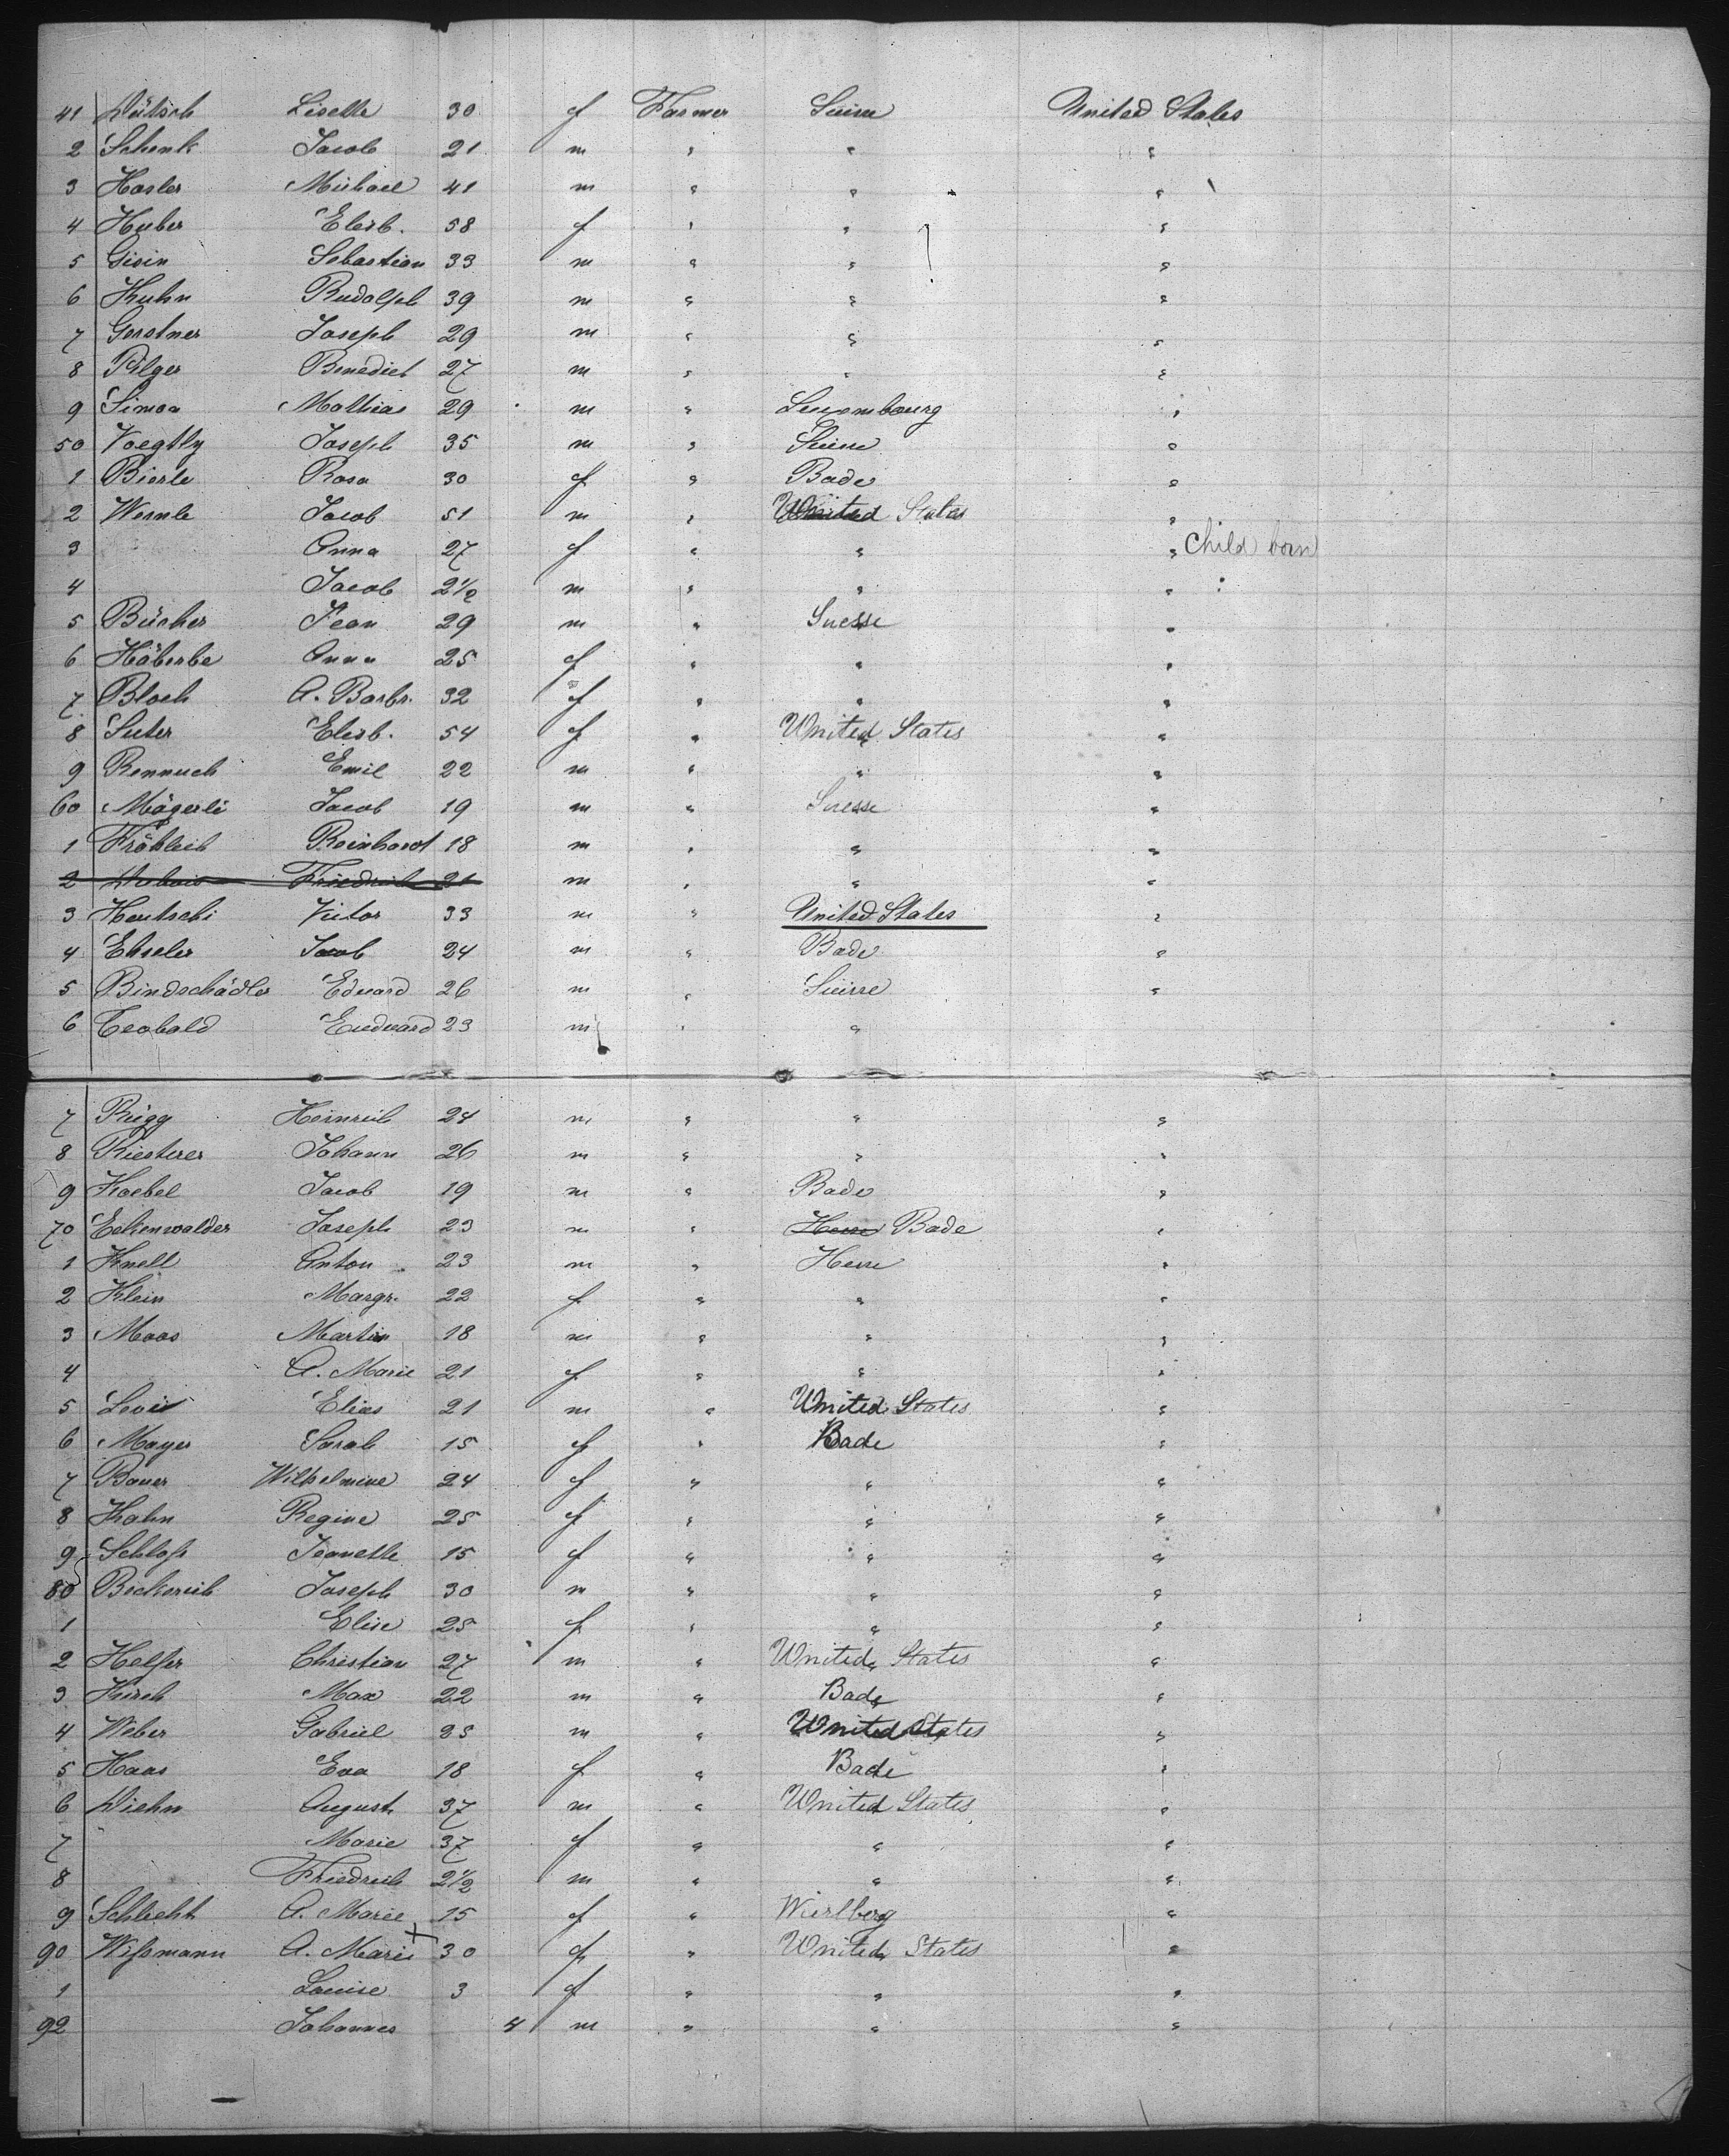 41 Dütsch Lisette 30 f Farmer Suisse United States
2 Schenk Jacob 21 m " " "
3 Hasler Michael 41 m " " "
4 Huber Elisb. 58 f " " "
5 Gisin Sebastian 33 m " " "
6 Kuhn Rudolph 39 m " " "
7 Gerstner Joseph 29 m " " "
8 Pilger Benedict 27 m " " "
9 Simon Mathias 29 m " Luxembourg "
50 Voegtly Joseph 35 m " Suisse "
1 Bierle Rosa 30 f " Bade "
2 Wernle Jacob 51 m " United States "
3 Anna 27 f " " " Child born
4 Jacob 2 1/2 m " " "
5 Bücher Jean 29 m " Suesse "
6 Häberbe Anna 25 f " " "
7 Bloch A. Barbr. 32 f " " "
8 Suter Elisb. 54 f " United States "
9 Rennuch Emil 22 m " " "
60 Mägerli Jacob 19 m " Suesse "
1 Fröhlich Reinhardt 18 m " " "
2 Dubois Friedrich 21 m " " "
3 Hentschi Victor 33 m " United States "
4 Ehseler Jacob 24 m " Bade "
5 Bindschädler Eduard 26 m " Suisse "
6 Teobald Euduard 23 m " "
7 Rügg Heinrich 24 m " " "
8 Riesterer Johann 26 m " " "
9 Kaebel Jacob 19 m " Bade "
70 Eckenwalder Joseph 23 m " Hesse Bade "
1 Knell Anton 23 m " Hesse "
2 Klein Margr. 22 f " " "
3 Maas Martin 18 m " " "
4 A. Marie 21 f " " "
5 Levi Elias 21 m " United States "
6 Mayer Sarah 15 f " Bade "
7 Bauer Wilhelmine 24 f " " "
8 Hahn Regine 25 f " " "
9 Schloß Jeanette 15 f " " "
80 Beckerich Joseph 30 m " " "
1 Elise 25 f " " "
2 Helfer Christian 27 m " United States "
3 Hirsch Max 22 m " Bade "
4 Weber Gabriel 25 m " United States "
5 Haas Eva 18 f " Bade "
6 Diehn August 37 m " United States "
7 Marie 37 f " " "
8 Friedrich 2 1/2 m " " "
9 Schlecht A. Marie 15 f " Würtberg "
90 Wißmann A. Marie 30 f " United States "
1 Louise 3 f " " "
92 Johannes 4 m " " "